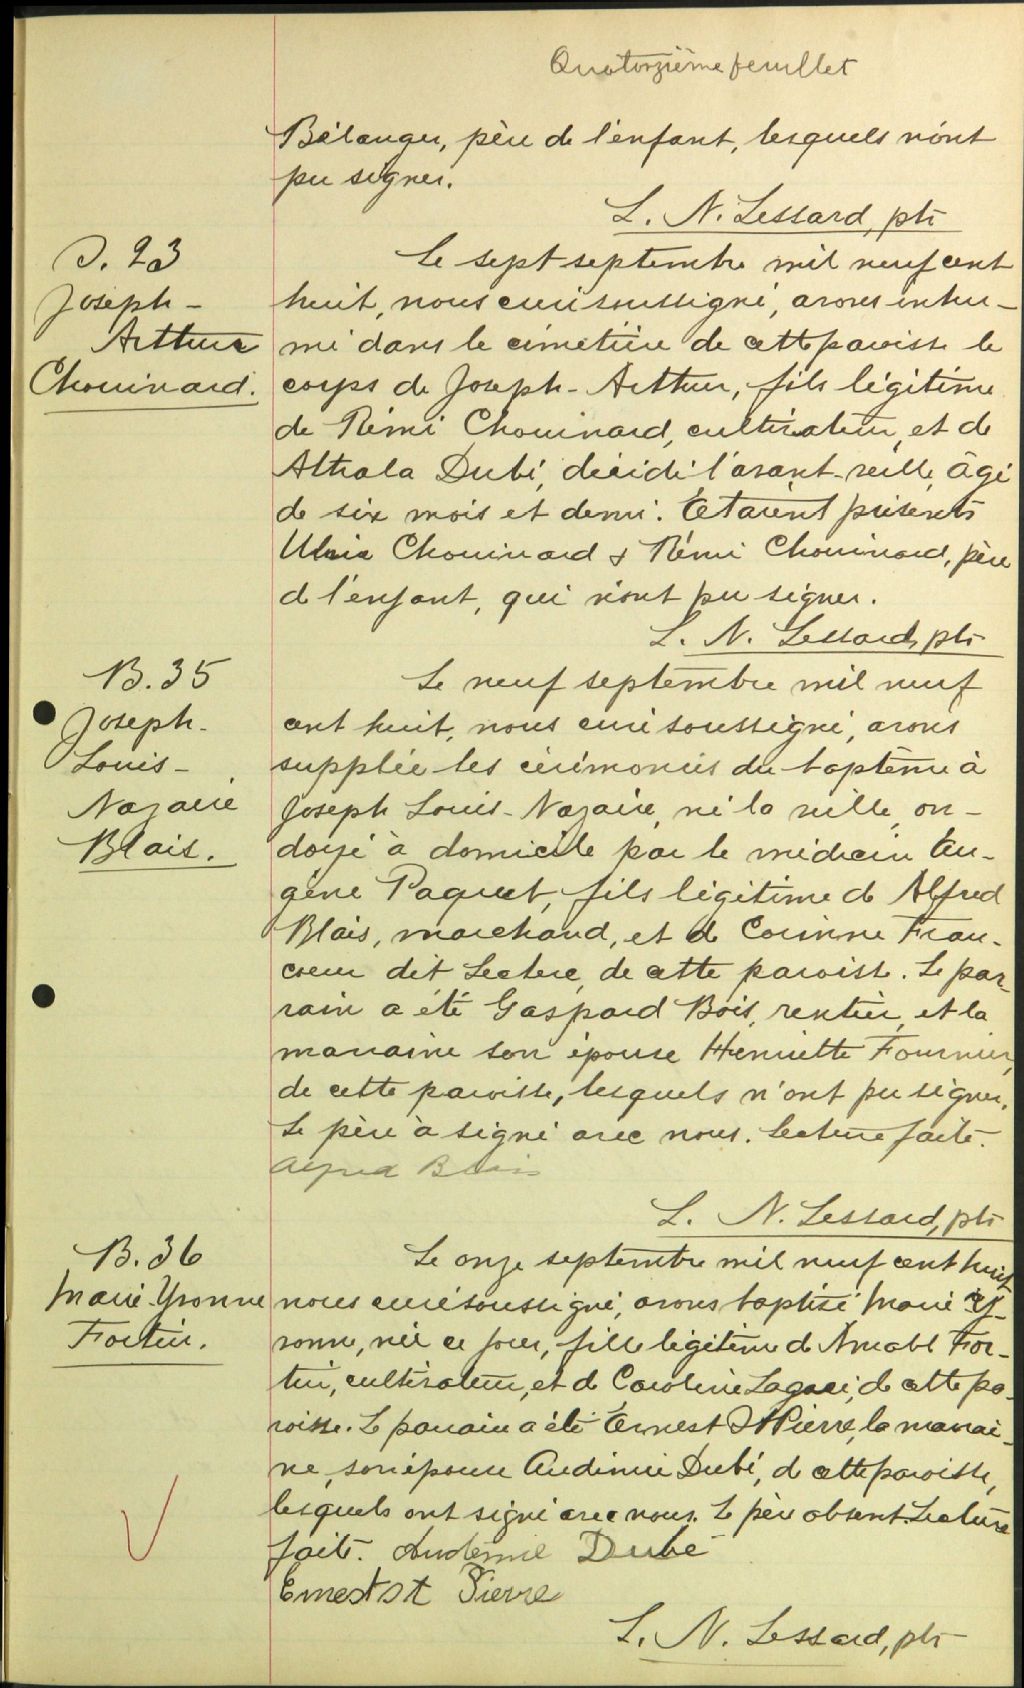 Quatorzième feuillet
Bélanger, père de l'enfant, lesquels n'ont
pu signer.
L. N. Lessard, ptr
S. 23
Joseph-
Arthur
Chouinard.
Le sept septembre mil neuf cent
huit, nous curé soussigné, avons inhu-
mé dans le cimetière de cette paroisse le
corps de Joseph-Arthur, fils légitime
de Rémi Chouinard, cultivateur, et de
Dubé, décédé l'avant-veille, âgé
de six mois et demi. Etaient présents
Ulric Chouinard & Rémi Chouinard, père
de l'enfant, qui n'ont pu signer.
L. N. Lessard, ptr
B. 35
Joseph-
Louis-
Nazaire
Blais.
Le neuf septembre mil neuf
cent huit, nous curé soussigné, avons
supplée les cérémonies du baptême à
Joseph Louis-Nazaire, né la veille, on-
doyé à domicile par le médecin Eu-
gène Paquet, fils légitime de Alfred
Blais, marchand, et de Corinne Fran-
coeur dit Leclerc, de cette paroisse. Le par-
rain a été Gaspard Bois, rentier, et la
marraine son épouse Henriette Fournier,
de cette paroisse, lesquels n'ont pu signer.
Le père à signé avec nous. Lecture faite.
Alfred Blais
L. N. Lessard, ptr
B. 36
Marie Yvonne
Fortin.
Le onze septembre mil neuf cent huit
nous curé soussigné, avons baptisé Marie Y-
vonne, née ce jour, fille légitime de Amable For-
tin, cultivateur, et de Caroline Lagacé, de cette pa-
roisse. Le parrain a été Ernest St Pierre, la marrai-
ne, son épouse Audénie Dubé, de cette paroisse,
lesquels ont signé avec nous. Le père absent. Lecture
faite. Dubé
Ernest St Pierre
L. N. Lessard, ptr